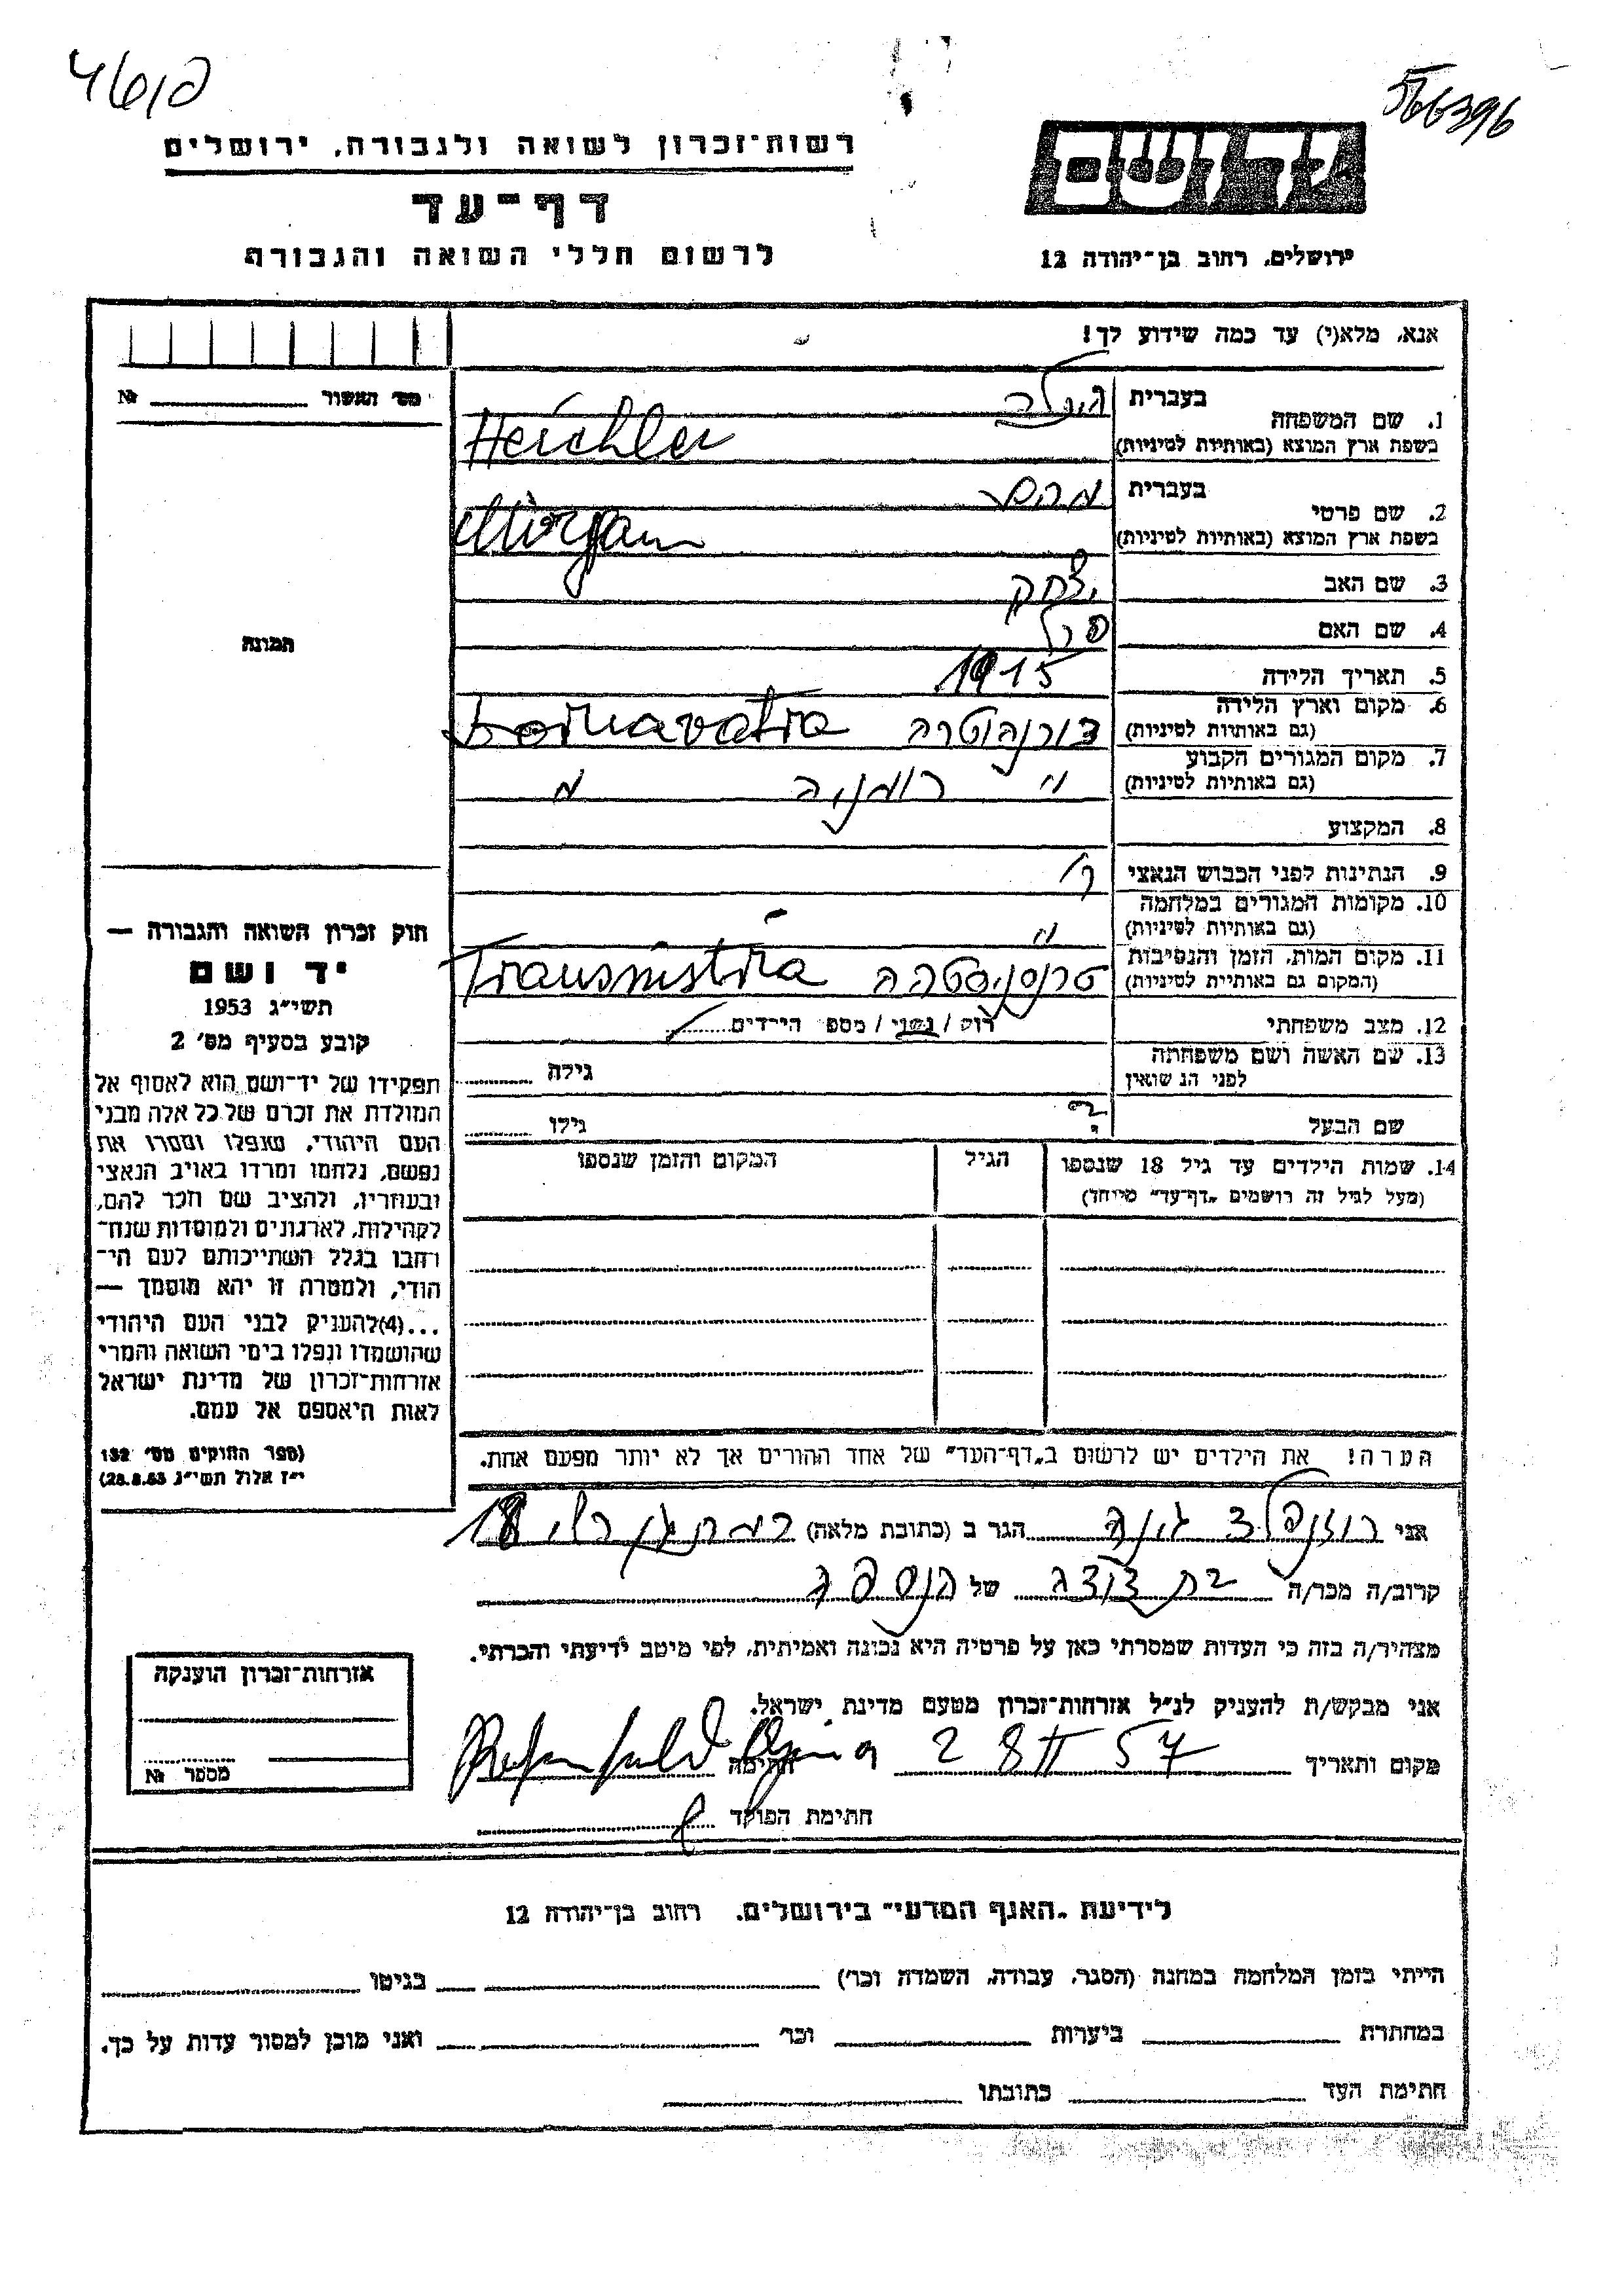 566396
רשות־זכרון לשואה ולגבורה, ירושלים
דף־עד
לרשום חללי השואה והגבורה
יד ושם
ירושלים, רחוב בן־יהודה 12
אנא, מלא(י) עד כמה שידוע לך!
מס׳ האשור №
1. שם המשפחה
בעברית
בשפת ארץ המוצא (באותיות לטיניות) Heichler
2. שם פרטי
בעברית מרים
בשפת ארץ המוצא (באותיות לטיניות)
3. שם האב יצחק
4. שם האם פרל
5. תאריך הלידה 1915
6. מקום וארץ הלידה (גם באותיות לטיניות) דורנהוטרה Dornavatra
7. מקום המגורים הקבוע (גם באותיות לטיניות) " רומניה "
8. המקצוע
9. הנתינות לפני הכבוש הנאצי
10. מקומות המגורים במלחמה (גם באותיות לטיניות) "
11. מקום המות, הזמן והנסיבות (המקום גם באותיית לטיניות) טרנסניסטריה Transnistria
12. מצב משפחתי רוק / נשוי / מספ הירדים
13. שם האשה ושם משפחתה לפני הנשואין גילה
שם הבעל ? גילו
14. שמות הילדים עד גיל 18 שנספו (מעל לגיל זה רושמים „דף־עד" מיוחד) הגיל המקום והזמן שנספו
הערה! את הילדים יש לרשום ב„דף־העד" של אחד ההורים אך לא יותר מפעם אחת.
תמונה
חוק זכרון השואה והגבורה —
יד ושם
תשי״ג 1953
קובע בסעיף מס׳ 2
תפקידו של יד־ושם הוא לאסוף אל
המולדת את זכרם של כל אלה מבני
העם היהודי, שנפלו ומסרו את
נפשם, נלחמו ומרדו באויב הנאצי
ובעוזריו, ולהציב שם וזכר להם,
לקהילות, לארגונים ולמוסדות שנח־
רחבו בגלל השתייכותם לעם הי־
הודי, ולמטרה זו יהא מוסמך —
...(4)להעניק לבני העם היהודי
שהושמדו ונפלו בימי השואה והמרי
אזרחות־זכרון של מדינת ישראל
לאות היאספם אל עמם.
(ספר החוקים מס׳ 132
י״ז אלול תשי״ג 28.8.53)
אני רוזנפלד גינה הגר ב (כתובת מלאה) רמת גן 18
קרוב/ה מכר/ה בת דודה של הנספה
מצהיר/ה בזה כי העדות שמסרתי כאן על פרטיה היא נכונה ואמיתית, לפי מיטב ידיעתי והכרתי.
אני מבקש/ת להעניק לנ״ל אזרחות־זכרון מטעם מדינת ישראל.
מקום ותאריך 28 II 57 חתימה Rosenfeld
חתימת הפוקד
אזרחות־זכרון הוענקה
מספר №
לידיעת „האגף המדעי" בירושלים, רחוב בן־יהודה 12
הייתי בזמן המלחמה במחנה (הסגר, עבודה, השמדה וכר׳) בגיטו
במחתרת ביערות וכר׳ ואני מוכן למסור עדות על כך.
חתימת העד כתובתו